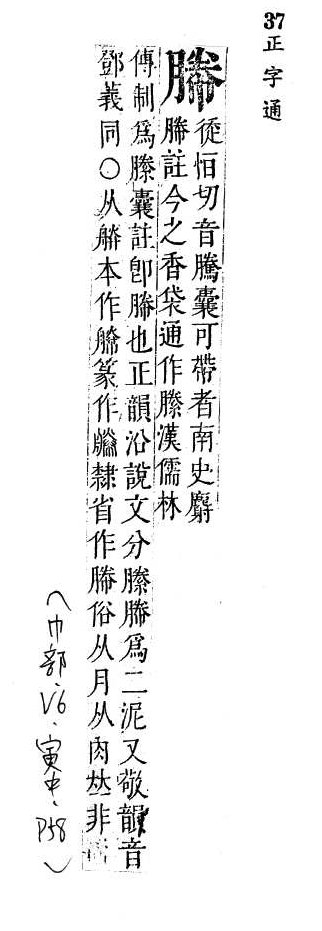 37
正字通
幐
從恒切音騰囊可帶者南史麝
幐註今之香袋通作縢漢儒林
傳制爲縢囊註卽幐也正韻沿說文分縢幐爲二泥又敬韻音
鄧義同○从
本作
篆作
隸省作幐俗从月从肉𠀤非
(巾部.V6.寅中.P58)